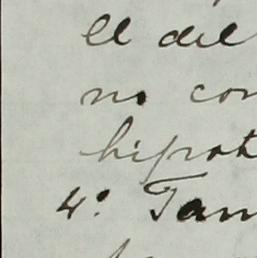 el del
no con
hipot
4º Tam